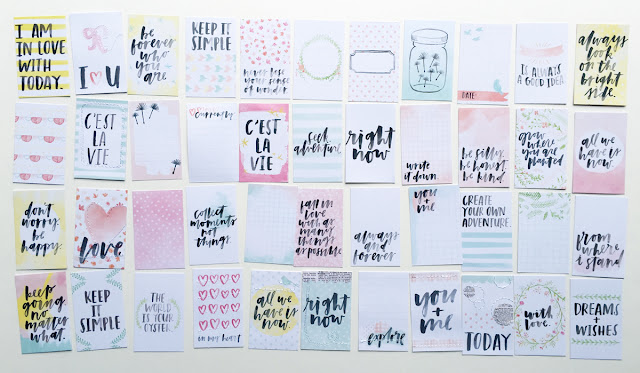 I AM
IN LOVE
WITH
TODAY.
I ♥ U
be
forever
who
you
are.
KEEP IT
SIMPLE
never lose
your sense
of wonder
DATE:
IS ALWAYS
A GOOD IDEA
always
look
on the
bright
side.
C'EST
LA
VIE
Currently
C'EST
LA
VIE
seek
adventure
right
now
write
it down.
be silly.
be honest.
be kind.
grow
where
you are
planted
all we
have is
now
don't
worry.
be
happy.
love.
collect
moments
not
things.
fall in
love
with as
many
things
as possible
always
and
forever
you
+ me
CREATE
YOUR OWN
ADVENTURE.
from
where i
stand
keep
going
no
matter
what.
KEEP
IT
SIMPLE
THE
WORLD
IS YOUR
OYSTER
on my heart
all we
have is
now.
right
now
explore
you
+
me
TODAY
with
love.
DREAMS
+
WISHES